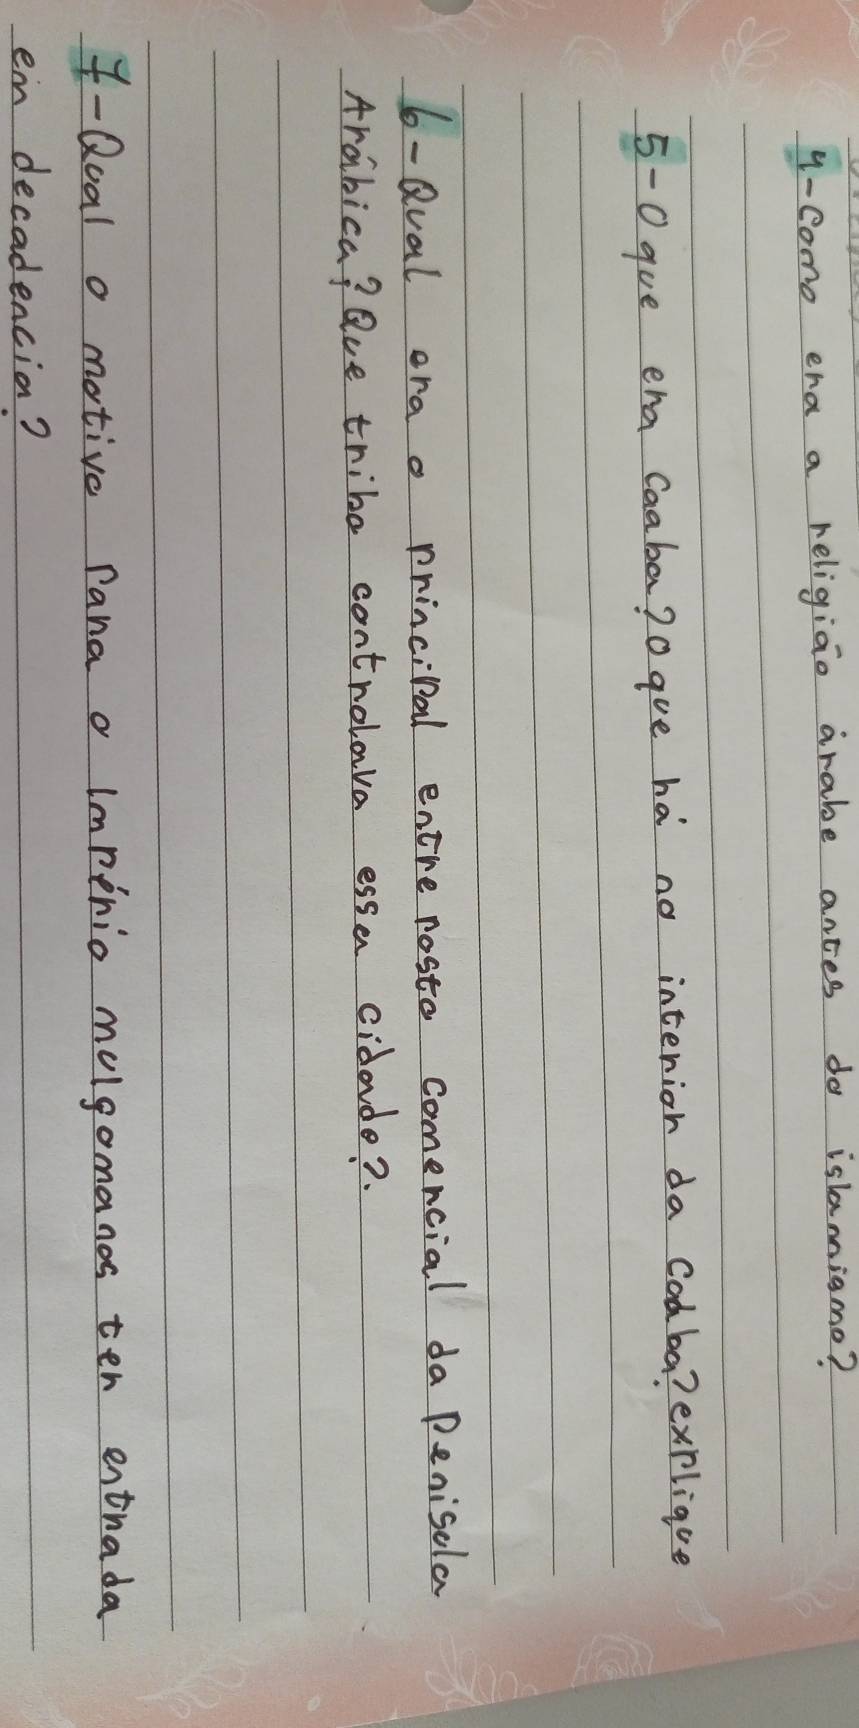 4-Como era a religião árabe antes do islamismo?
5-O que era Caaba? O que há no interior da Caaba? explique
6-Qual era o principal entre posto comercial da Penisula
Arábica? Que tribo controlava essa cidade?.
7-Qual o motivo Para o Império mulçomanos ter entrada
em decadencia?